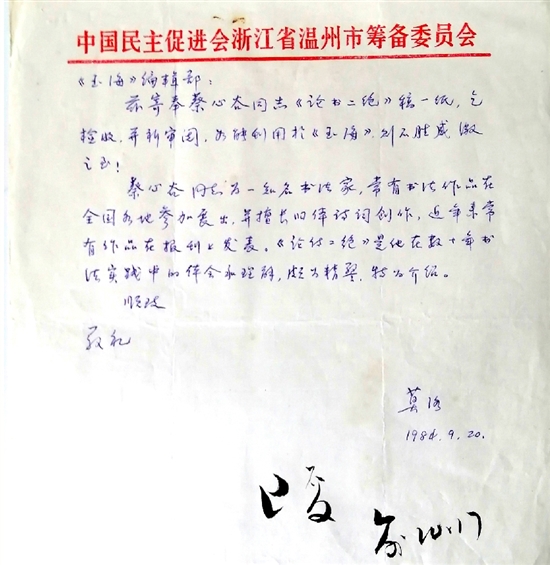 中国民主促进会浙江省温州市筹备委员会
《玉海》编辑部：
兹寄奉蔡心谷同志《论书二绝》稿一纸，乞
检收，并祈审阅，如能利用於《玉海》，则不胜感激
之至！
蔡心谷同志为一知名书法家，常有书法作品在
全国各地参加展出，并擅长旧体诗词创作，近年来常
有作品在报刊上发表，《论书二绝》是他在数十年书
法实践中的体会和理解，颇为精警，特为介绍。
顺致
敬礼
莫洛
1984.9.20.
已复